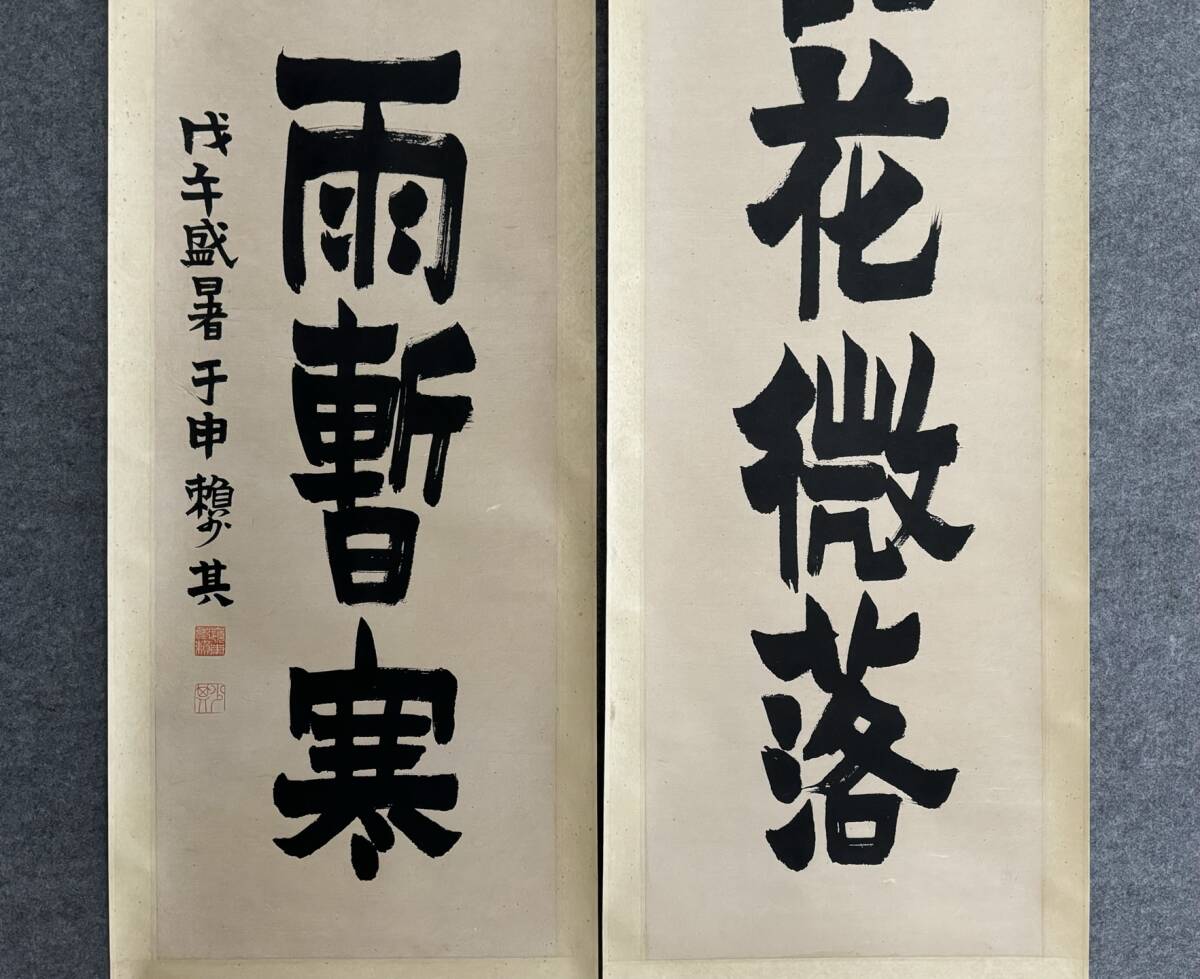 花微落
雨暫寒
戊午盛暑于申賴少其